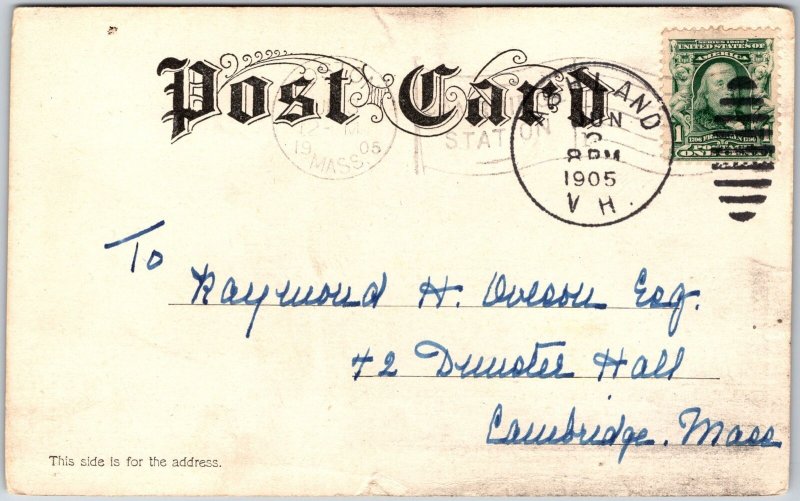 Post Card
12- M
19 05
MASS.
STATION
JUN
8 PM
1905
SERIES 1902
UNITED STATES OF
AMERICA
1
FRANKLIN
POSTAGE
To
Raymond H. Oveson Esq.
42 Dunster Hall
Cambridge. Mass
This side is for the address.